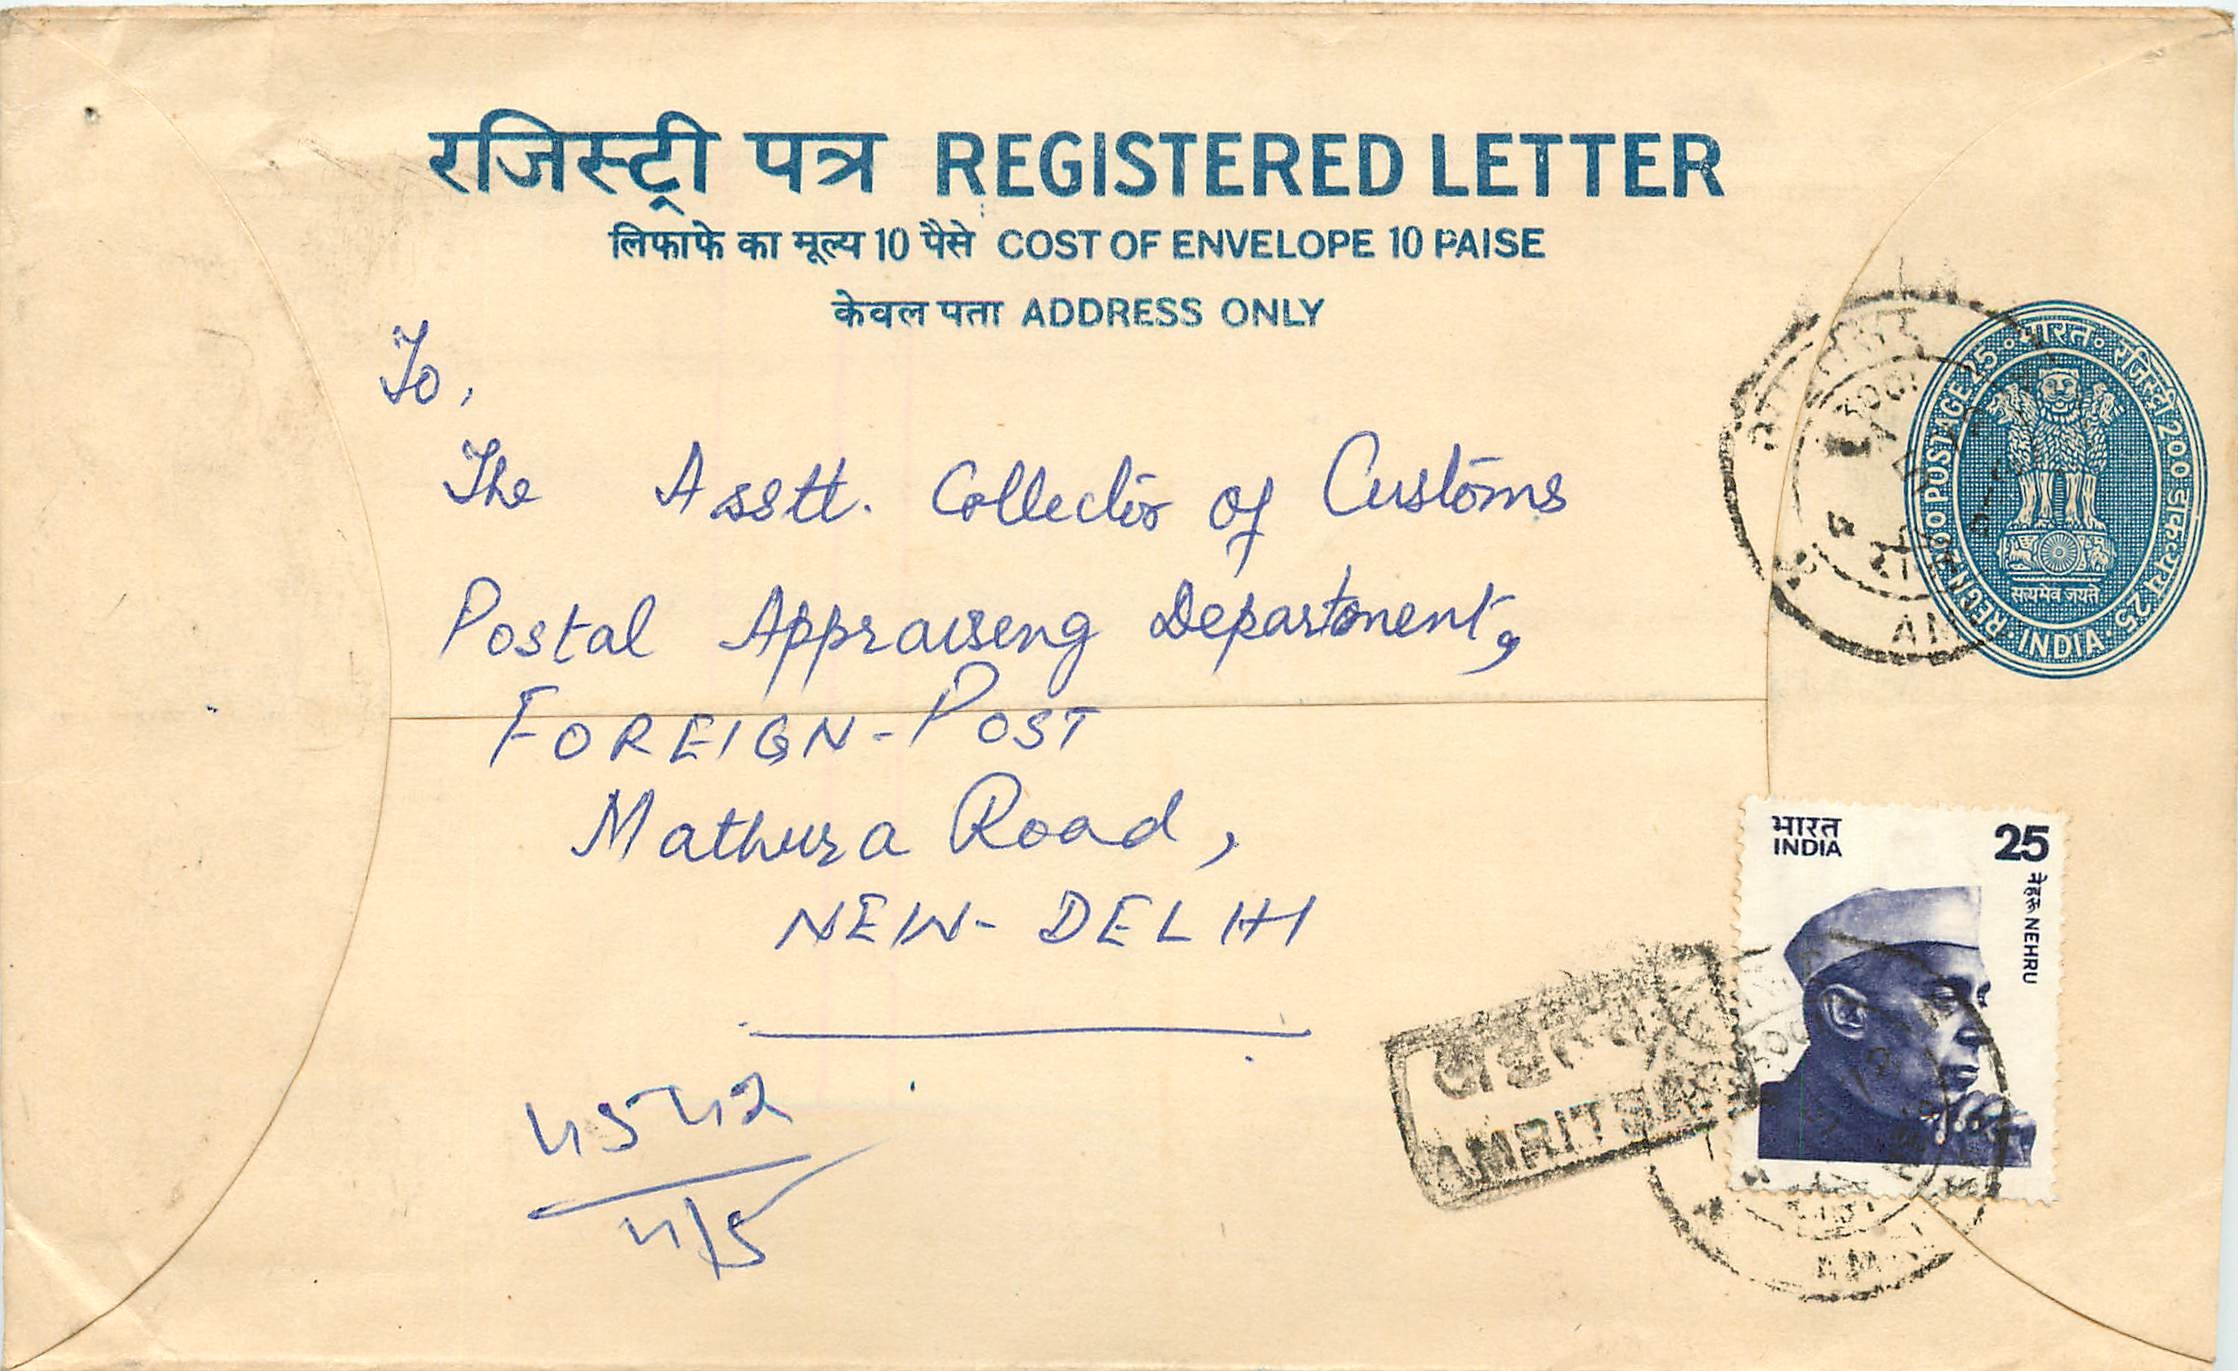 रजिस्ट्री पत्र REGISTERED LETTER
लिफाफे का मूल्य 10 पैसे COST OF ENVELOPE 10 PAISE
केवल पता ADDRESS ONLY
REGN 200 POSTAGE 25 भारत रजिस्ट्री 200 डाकव्यय 25 INDIA
सत्यमेव जयते
To,
The Asstt. Collector of Customs
Postal Appraiseng Department,
FOREIGN-POST
Mathura Road,
NEW-DELHI
भारत
INDIA
25
नेहरू NEHRU
AMRITSAR